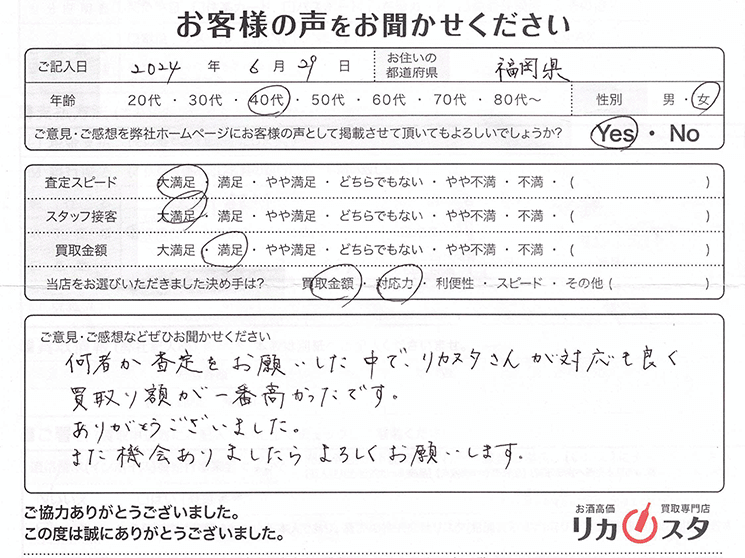 お客様の声をお聞かせください
ご記入日 2024 年 6 月 29 日 お住いの都道府県 福岡県
年齢 20代 ・ 30代 ・ 40代 ・ 50代 ・ 60代 ・ 70代 ・ 80代～ 性別 男 ・ 女
ご意見・ご感想を弊社ホームページにお客様の声として掲載させて頂いてもよろしいでしょうか? Yes ・ No
査定スピード 大満足 ・ 満足 ・ やや満足 ・ どちらでもない ・ やや不満 ・ 不満 ・ ( )
スタッフ接客 大満足 ・ 満足 ・ やや満足 ・ どちらでもない ・ やや不満 ・ 不満 ・ ( )
買取金額 大満足 ・ 満足 ・ やや満足 ・ どちらでもない ・ やや不満 ・ 不満 ・ ( )
当店をお選びいただきました決め手は? 買取金額 ・ 対応力 ・ 利便性 ・ スピード ・ その他 ( )
ご意見・ご感想などぜひお聞かせください
何者か査定をお願いした中で、リカスタさんが対応も良く
買取り額が一番高かったです。
ありがとうございました。
また機会ありましたらよろしくお願いします。
ご協力ありがとうございました。
この度は誠にありがとうございました。
お酒高価 買取専門店
リカスタ